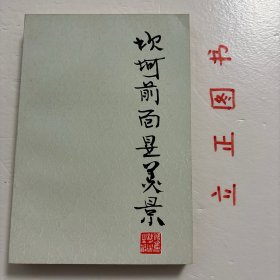 坎坷前面是美景
立正图书